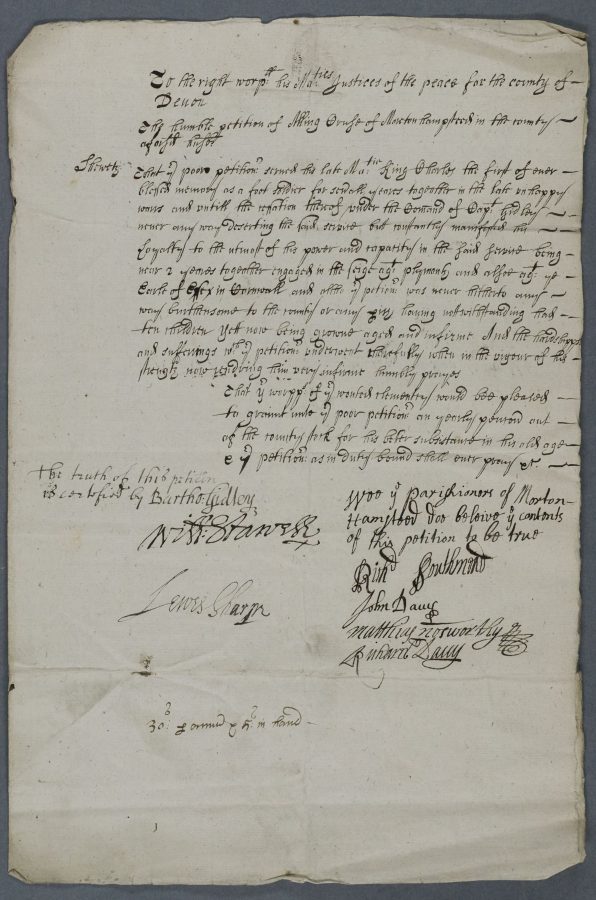 To the right worpll his Maties Justices of the peace for the county of
Devon
The humble petition of Alling Cruse of Morton hampsteed in the county
aforesd
Sheweth That yr poore petitionr served his late Matie King Charles the first of ever
blessed memory as a foot soldier for severall yeares together in the late unhappy
wars and untill the cessation thereof under the Comand of Capt Gidley
never any way deserting the said service but constantly manifested his
Loyalty to the utmost of his power and capacity in the said service being
near 2 yeares together engaged in the seige agt plymouth and alsoe agt ye
Earle of Essex in Cornwall and altho yr petitionr was never hitherto any
ways burthensome to the county or any having notwithstanding had
ten children yet now being growne aged and infirme And the hardshipps
and sufferings wch yr petitionr underwent cheerefully when in the vigour of his
strength now rendring him very infirme humbly prayes
That yr worpps of yr wonted clemency would bee pleased
to graunt unto yr poore petitionr an yearly pencon out
of the county stock for his beter subsistance in his old age
& yr petitionr as in duty bound shall ever pray &c.
The truth of this petition
is certefied by Bartho: Gidley
Will: Stawell
Lewes Sharpe
Wee ye Parishioners of Morton
Hampsteed doe beleive ye contents
of this petition to be true
Richd Southmead
John Davy
Matthew Nosworthy
Richard Davy
30s p annum & 5s in hand